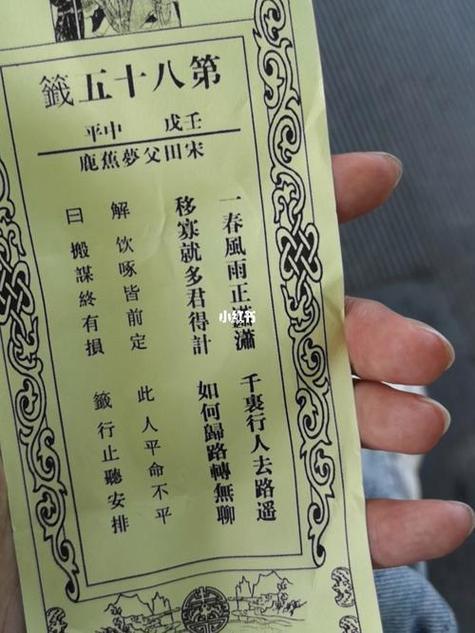 第八十五籤
壬戊 中平
宋田父夢蕉鹿
一春風雨正瀟瀟 千裏行人去路遙
移寡就多君得計 如何歸路轉無聊
解 饮啄皆前定 此人平命不平
曰 搬謀終有損 籤行止聽安排
小红书